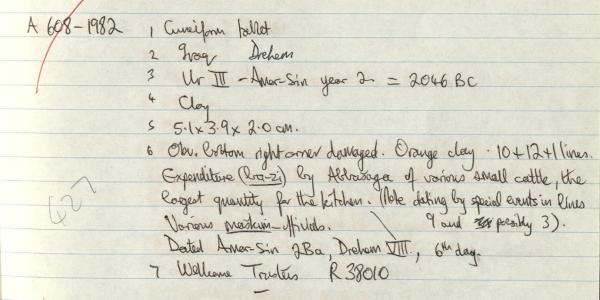 A 608-1982 1 Cuneiform tablet
2 Iraq Drehem
3 Ur III - Amar-Sin year 2 = 2046 BC
4 Clay
5 5.1 x 3.9 x 2.0 cm.
6 Obv. bottom right corner damaged. Orange clay. 10+12+1 lines.
Expenditure (ba-zi) by Abbasaga of various small cattle, the
largest quantity for the kitchen. (Note dating by special events in lines
9 and possibly 3).
Various maškim-officials.
Dated Amar-Sin 2Ba, Drehem VIII, 6th day.
7 Wellcome Trustees R 38010
427